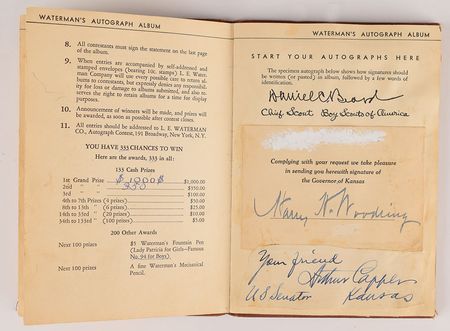 WATERMAN'S AUTOGRAPH ALBUM
8. All contestants must sign the statement on the last page
of the album.
9. When entries are accompanied by self-addressed and
stamped envelopes (bearing 10c. stamps) L. E. Water-
man Company will use every possible care to return al-
bums to contestants, but expressly denies any responsibil-
ity for loss or damage to albums submitted, and also re-
serves the right to retain albums for a time for display
purposes.
10. Announcement of winners will be made, and prizes will
be awarded, as soon as possible after contest closes.
11. All entries should be addressed to L. E. WATERMAN
CO., Autograph Contest, 191 Broadway, New York, N. Y.
YOU HAVE 333 CHANCES TO WIN
Here are the awards, 333 in all:
133 Cash Prizes
1st Grand Prize $1000$ $1,000.00
2nd " " 350 $350.00
3rd " " $100.00
4th to 7th Prizes (4 prizes) $50.00
8th to 13th " (6 prizes) $25.00
14th to 33rd " (20 prizes) $10.00
34th to 133rd " (100 prizes) $5.00
200 Other Awards
Next 100 prizes $5 Waterman's Fountain Pen
(Lady Patricia for Girls—Famous
No. 94 for Boys).
Next 100 prizes A fine Waterman's Mechanical
Pencil.
WATERMAN'S AUTOGRAPH ALBUM
START YOUR AUTOGRAPHS HERE
The specimen autograph below shows how signatures should
be written (or pasted) in album, followed by a few words of
identification:
Daniel C. Beard
Chief Scout Boy Scouts of America
Complying with your request we take pleasure
in sending you herewith signature of
the Governor of Kansas
Harry H. Woodring
Your friend
Arthur Capper
US Senator Kansas